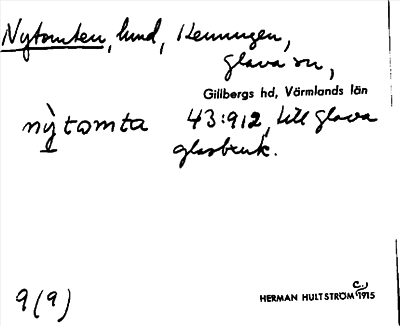 Nytomten, lund, Kenningen,
Glava sn,
Gillbergs hd, Värmlands län
nỳtomta 43:912, till Glava
glasbruk.
9 (9)
HERMAN HULTSTRÖM c. 1915